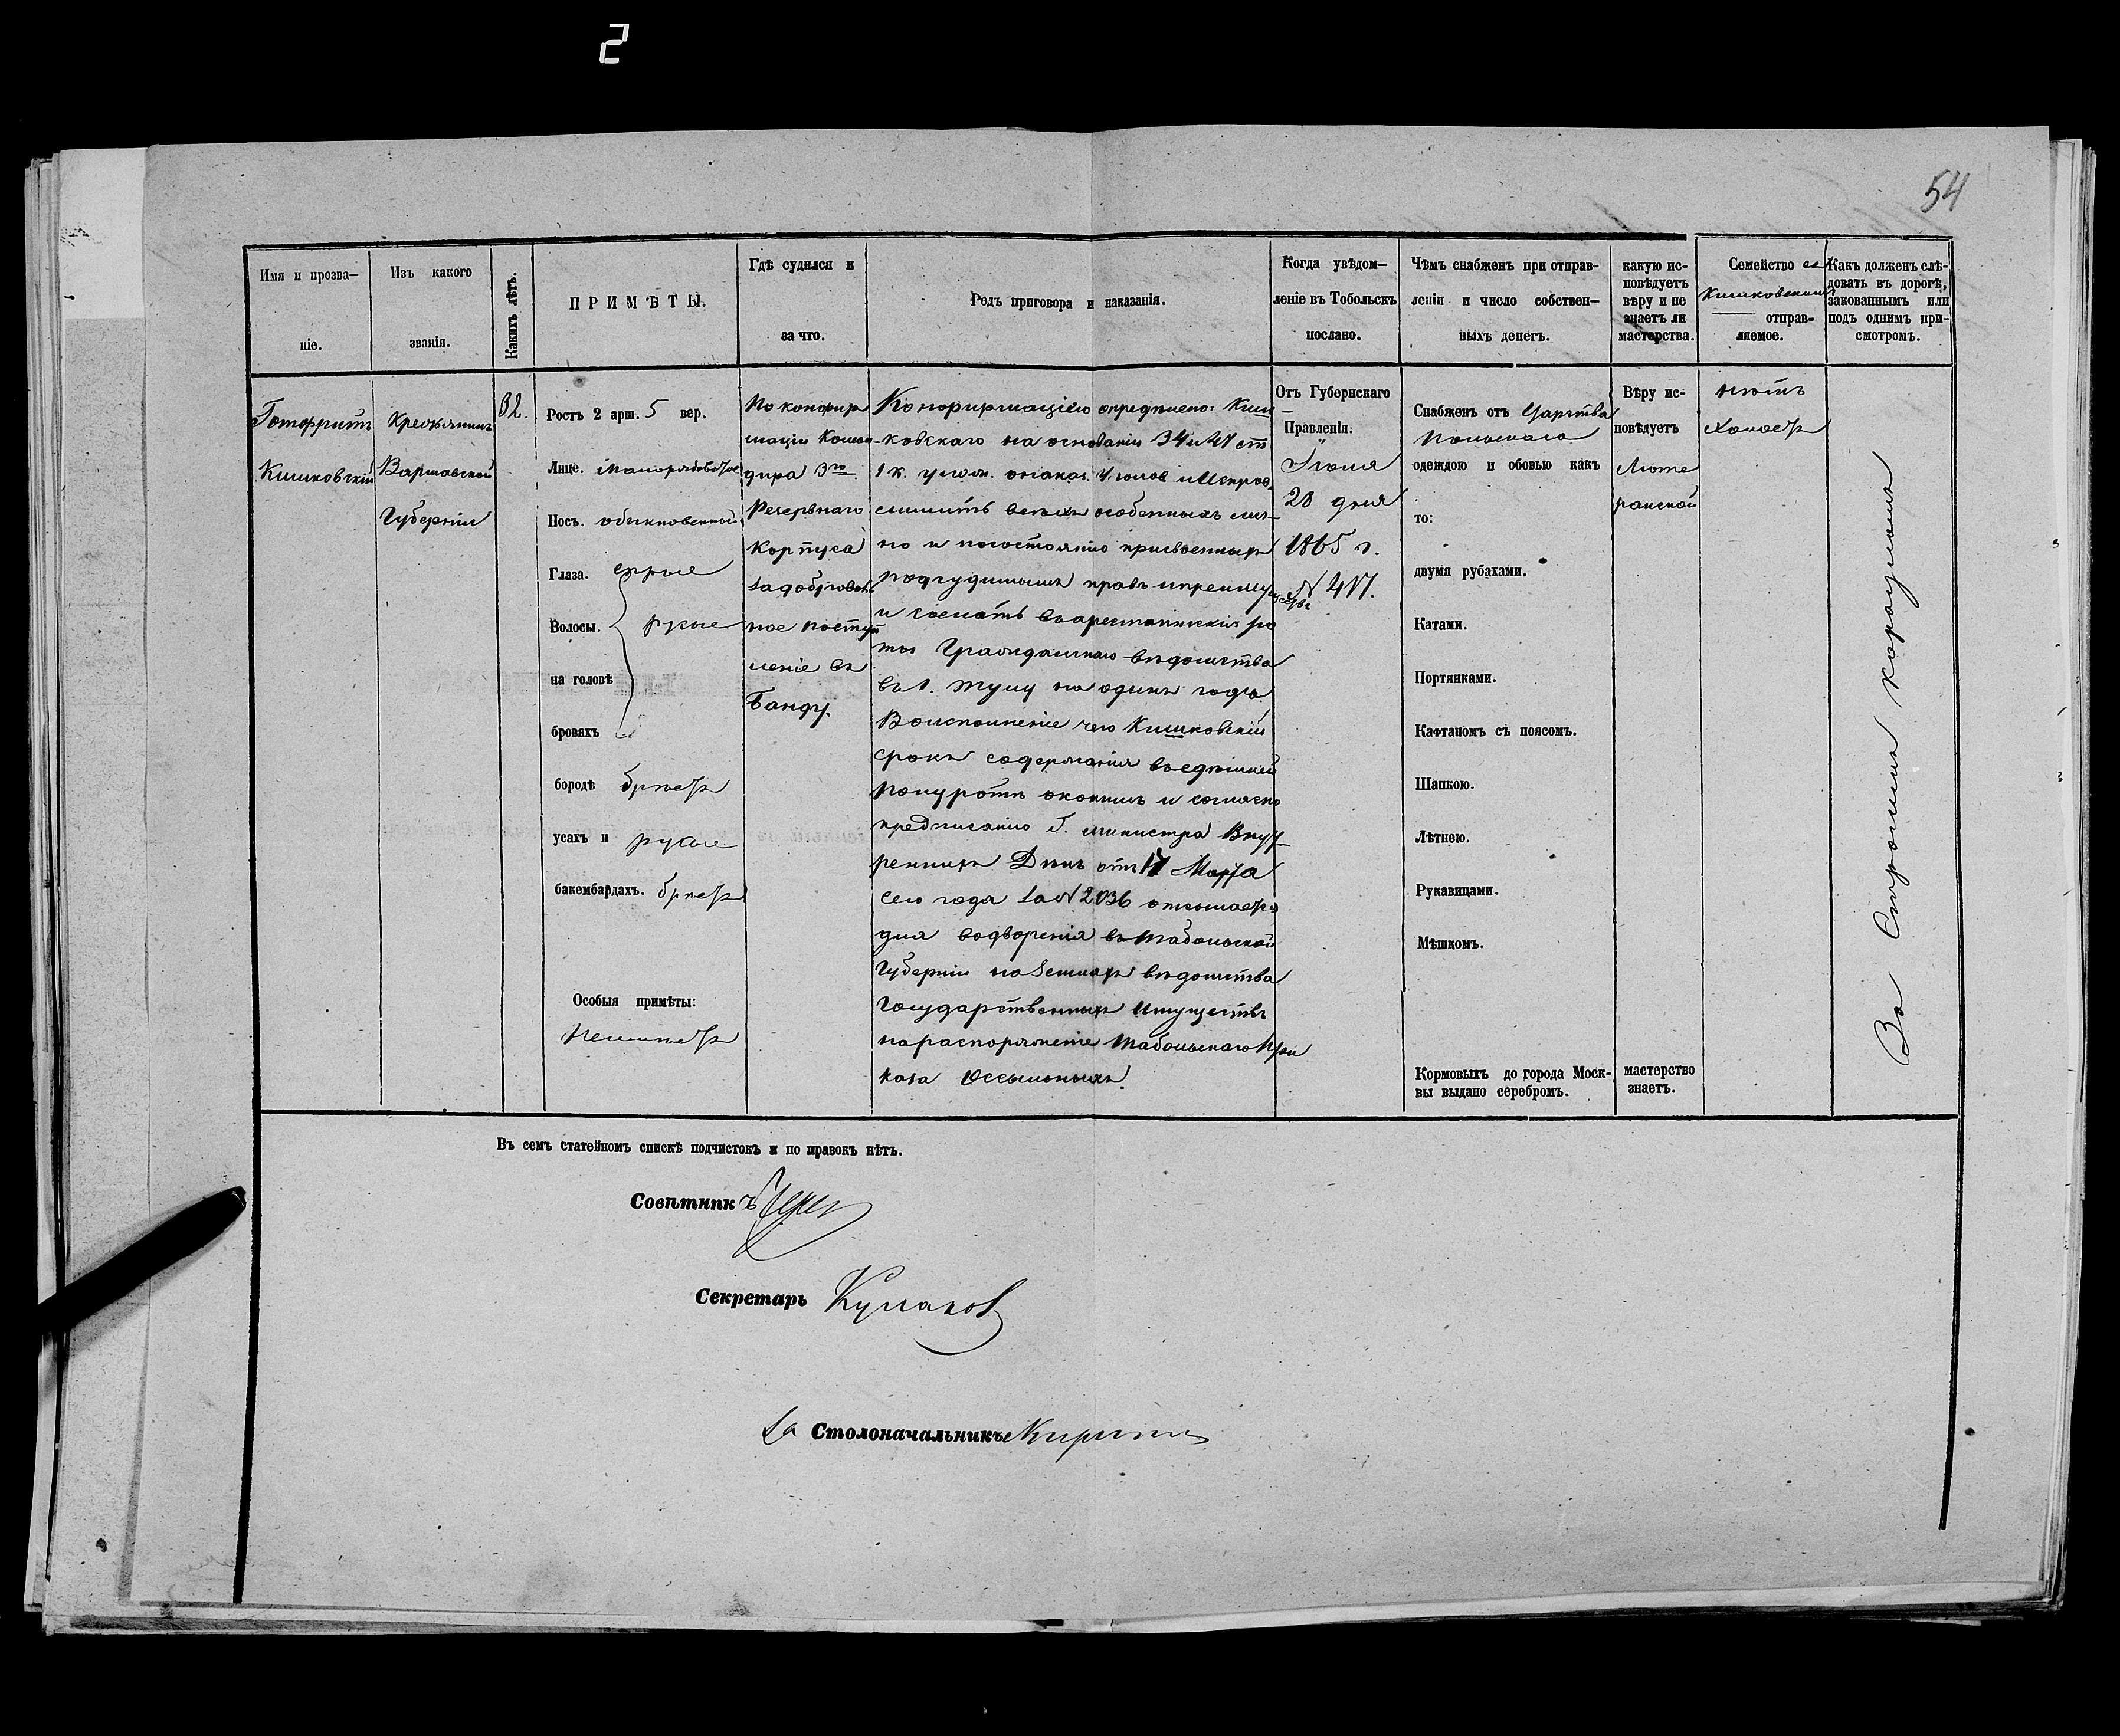 2
54
Имя и прозва-
ніе.
Изъ какого
званія.
Какихъ лѣтъ.
ПРИМѢТЫ.
Гдѣ судился и
за что.
Родъ приговора и наказанія.
Когда увѣдом-
леніе въ Тобольскъ
послано.
Чѣмъ снабженъ при отправ-
леніи и число собствен-
ныхъ денегъ.
какую ис-
повѣдуетъ
вѣру и не
знаетъ ли
мастерства.
Семейство
Кишковскимъ
отправ-
ляемое.
Какъ долженъ слѣ-
довать въ дорогѣ,
закованнымъ или
подъ однимъ при-
смотромъ.
Готфритъ
Кишковскій
Крестьянинъ
Варшавской
Губерніи
32.
Ростъ 2 арш. 5 вер.
Лице.
Носъ. обыкновенный
Глаза. сѣрые
Волосы. русые
на головѣ
бровяхъ
бородѣ брѣетъ
усахъ и русые
бакембардахъ. брѣетъ
Особыя примѣты:
Неимѣетъ
По конфир
маціи Коман-
дира 3го
Резервнаго
Корпуса
за доброволь
ное поступ
леніе въ
Банду.
Конфирмаціею опредѣлено: Киш
ковскаго на основаніи 34 и 47 ст
1 к. улож. о наказ. Уголов. и Исправ.
лишить всѣхъ особенныхъ лич-
но и посостоянію присвоенныхъ
подсудимымъ правъ и преимуществъ
и сослать въ арестантскія ро
ты Гражданскаго вѣдомства
въ г. Тулу на одинъ годъ.
Во исполненіе чего Кишковскій
срокъ содержанія въ здѣшней
полуротѣ окончилъ и согласно
предписанію Г. Министра Внут
реннихъ Дѣлъ отъ 17 Марта
сего года за № 2036 отсылается
для водворенія въ Тобольской
Губерніи на земляхъ вѣдомства
Государственныхъ Имуществъ
на распоряженіе Тобольскаго При
каза о Ссыльныхъ.
Отъ Губернскаго
Правленія.
28 дня
1865 г.
№ 417.
Снабженъ отъ Царства
Польскаго
одеждою и обовью какъ
то:
двумя рубахами.
Катами.
Портянками.
Кафтаномъ съ поясомъ.
Шапкою.
Лѣтнею.
Рукавицами.
Мѣшкомъ.
Кормовыхъ до города Моск-
вы выдано серебромъ.
Вѣру ис-
повѣдуетъ
Люте
ранской
мастерство
знаетъ.
нѣтъ
Холостъ
За Строгимъ карауломъ
Въ семъ статейномъ спискѣ подчистокъ и по правокъ нѣтъ.
Совѣтникъ
Секретарь Кулаков
За Столоначальникъ